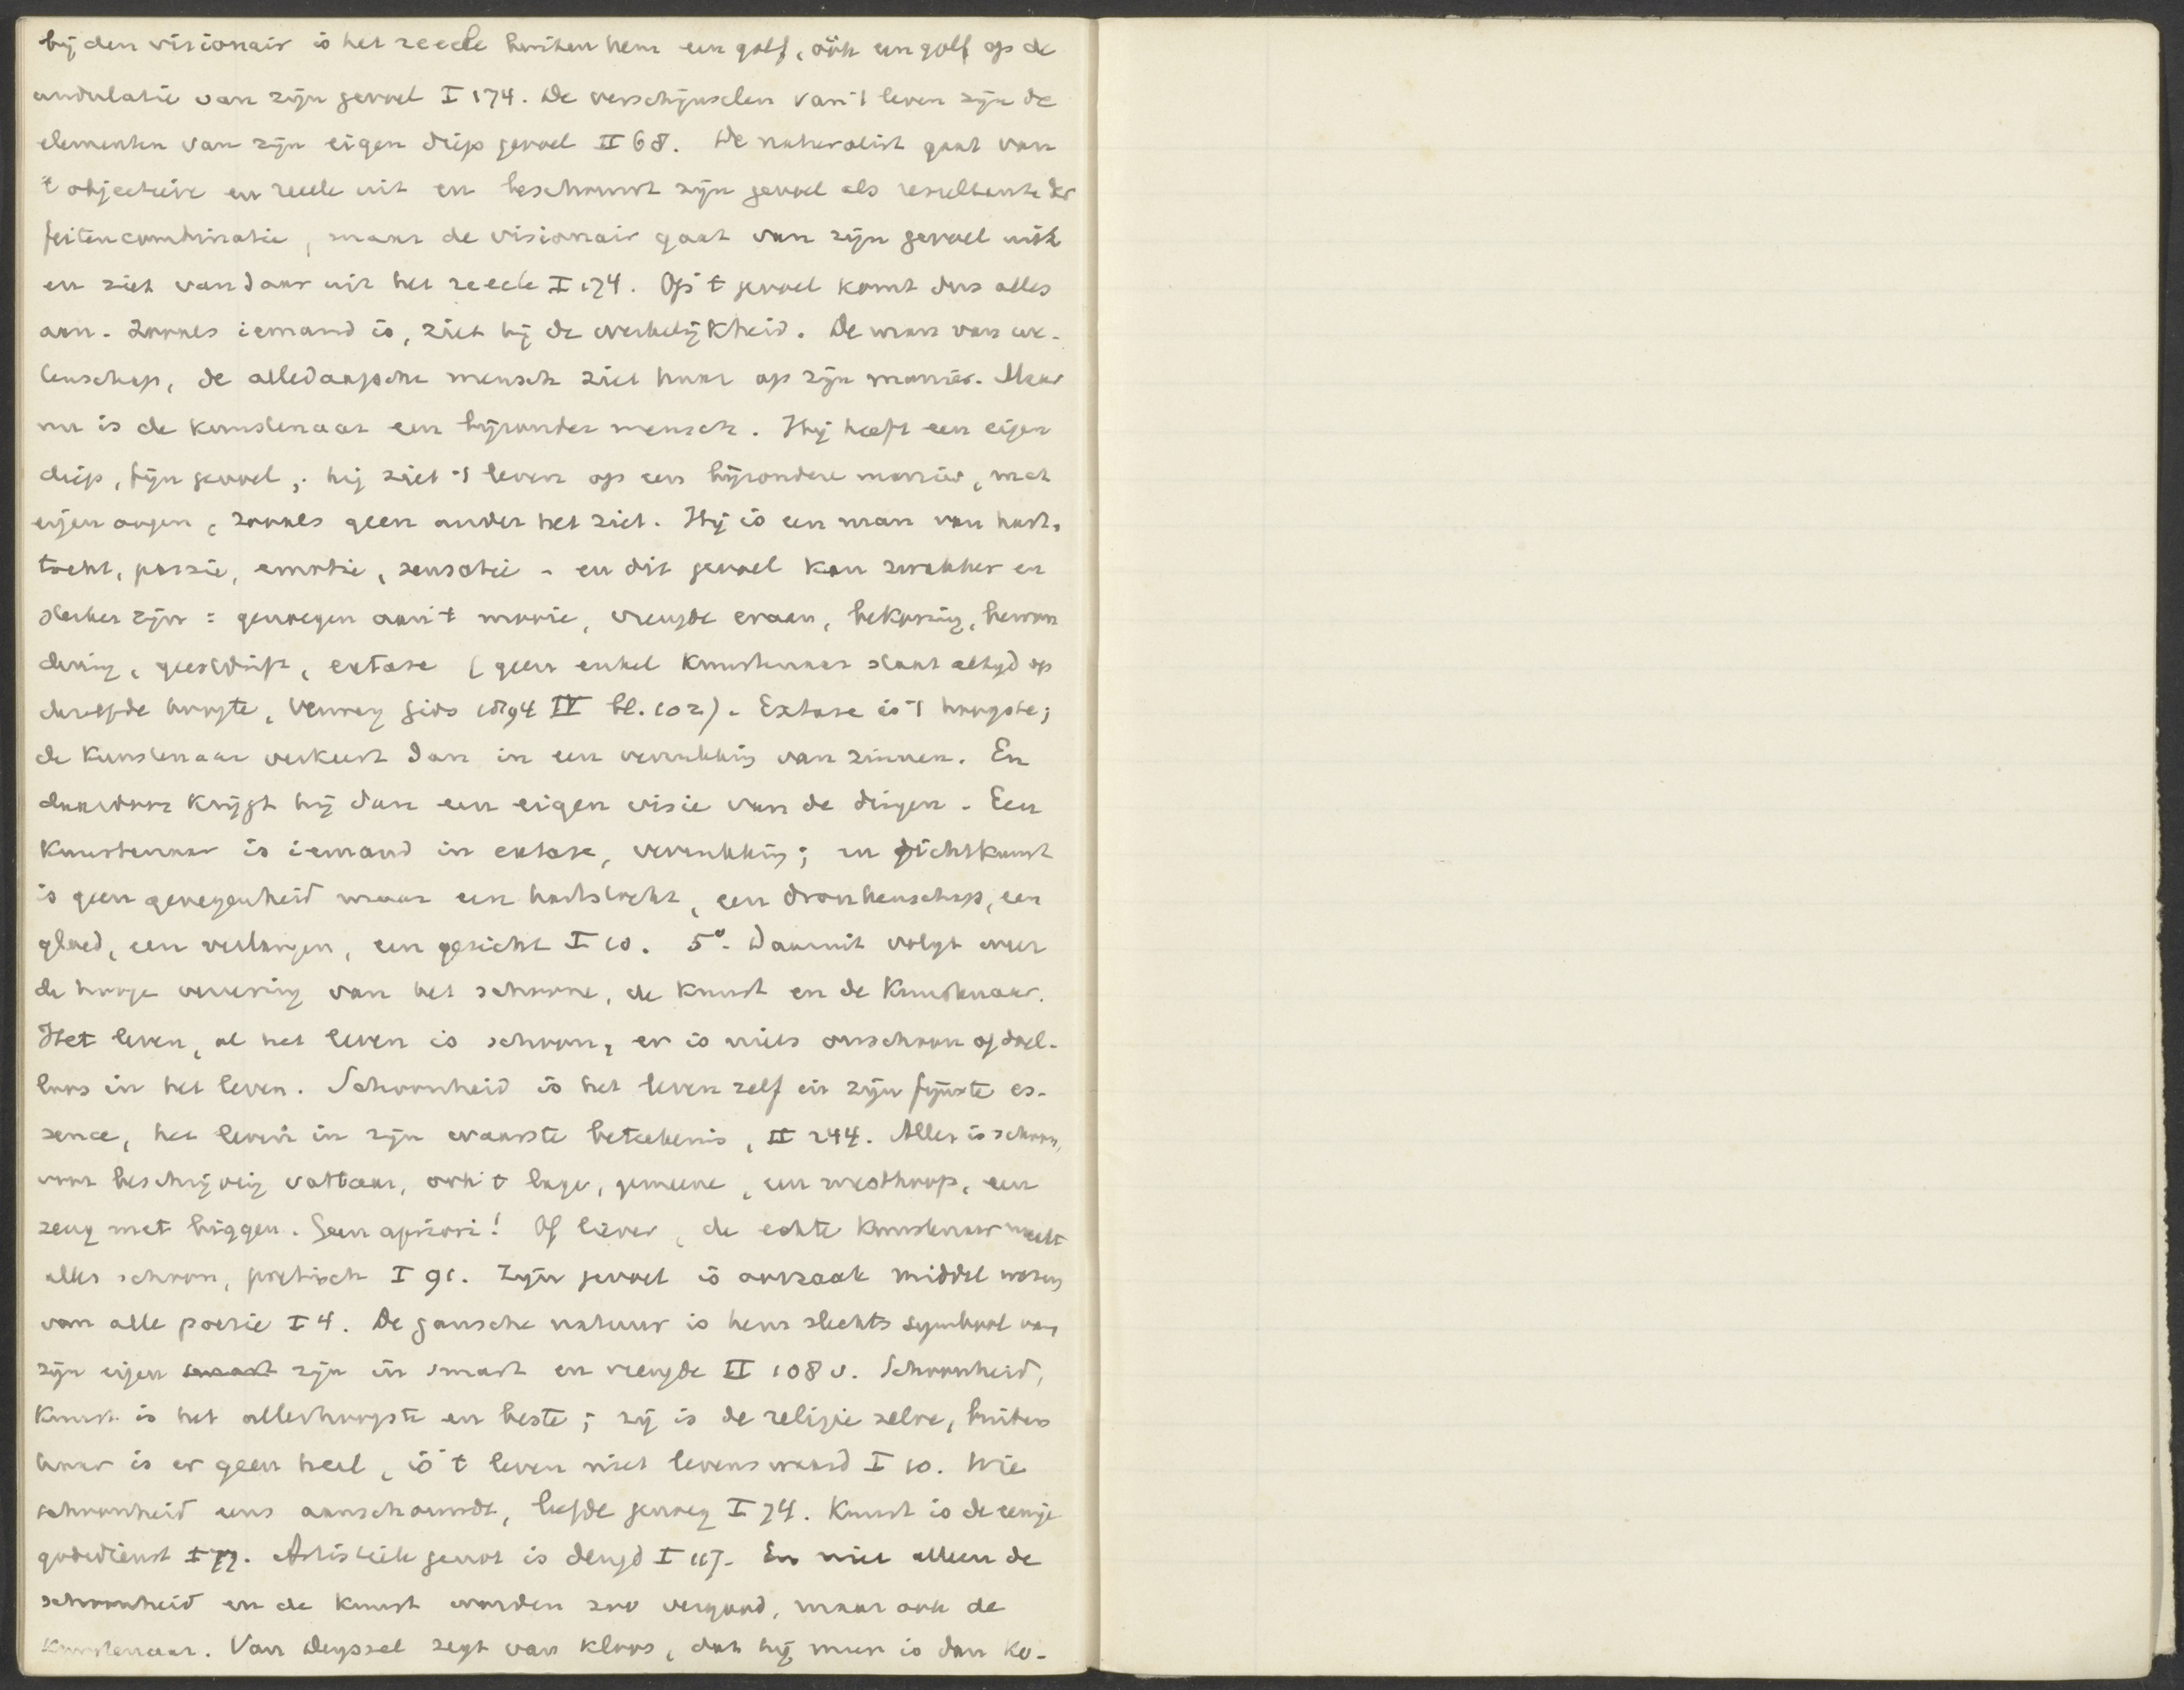 bij den visionair is het reëele buiten hem een golf, óók een golf op de
undulatie van zijn gevoel I 174. De verschijnselen van 't leven zijn de
elementen van zijn eigen diep gevoel II 68. De naturalist gaat van
't objectieve en reëele uit en beschouwt zijn gevoel als resultante der
feitencombinatie, maar de visionair gaat van zijn gevoel uit
en ziet vandaar uit het reëele I 174. Op 't gevoel komt dus alles
aan. Zooals iemand is, ziet hij de werkelijkheid. De man van we-
tenschap, de alledaagsche mensch ziet haar op zijn manier. Maar
nu is de kunstenaar een bijzonder mensch. Hij heeft een eigen
diep, fijn gevoel; hij ziet 't leven op een bijzondere manier, met
eigen oogen, zooals geen ander het ziet. Hij is een man van harts-
tocht, poëzie, emotie, sensatie - en dit gevoel kan zwakker en
sterker zijn: genoegen aan 't mooie, vreugde eraan, bekoring, bewon
dering, geestdrift, extase (geen enkel kunstenaar staat altijd op
dezelfde hoogte, Verwey Gids 1894 IV bl. 102). Extase is 't hoogste;
de kunstenaar verkeert dan in een verrukking van zinnen. En
daardoor krijgt hij dan een eigen visie van de dingen. Een
kunstenaar is iemand in extase, verrukking; en dichtkunst
is geen genegenheid maar een hartstocht, een dronkenschap, een
gloed, een verlangen, een gezicht I 10. 5º. Daaruit volgt weer
de hooge vereering van het schoone, de kunst en de kunstenaar.
Het leven, al het leven is schoon, er is niets onschoon of doel-
loos in het leven. Schoonheid is het leven zelf in zijn fijnste es-
sence, het leven in zijn waarste beteekenis, II 244. Alles is schoon,
voor beschrijving vatbaar, ook 't lage, gemeene, een mesthoop, een
zeug met biggen. Geen apriori! Of liever, de echte kunstenaar maakt
alles schoon, poëtisch I 91. Zijn gevoel is oorzaak middel wezen
van alle poëzie I 4. De gansche natuur is hem slechts symbool van
zijn eigen smart zijn in smart en vreugde II 108 v. Schoonheid,
kunst is het allerhoogste en beste; zij is de religie zelve, buiten
haar is er geen heil, is 't leven niet levenswaard I 10. Wie
schoonheid eens aanschouwde, leefde genoeg I 74. Kunst is de eenige
godsdienst I 77. Artistiek genot is deugd I 117. En niet alleen de
schoonheid en de kunst worden zoo vergood, maar ook de
kunstenaar. Van Deyssel zegt van Kloos, dat hij meer is dan ko-